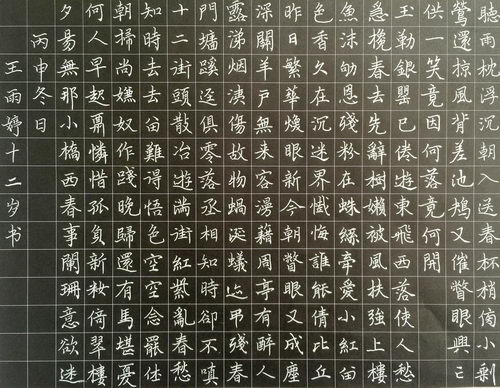 聽雨枕浮朝入送春杯梢偷小剩
鶯還掠風背差池鳩又催瞥眼興亡
供一笑竟因何落竟何開
玉勒銀罌已倦遊東飛西落使人愁
急攙春去先辭樹嬾被風扶強上樓
魚沫劬恩殘粉在蛛絲牽愛小紅留
色香久在沉迷界懺悔誰能倩比丘
昨日繁華煥眼新今朝瞥眼又成塵
深關羊戶無來客漫藉周亭有醉人
露涕烟洟傷故物蝸涎蟻迹弔殘春
門墻蹊逕俱零落丞相知時卻不嗔
十二街頭散冶遊滿街紅紫亂春愁
知時去去留難得悟色空空念罷休
朝掃尚嫌奴作踐晚歸還有馬堪憂
何人早起憐惜孤負新妝倚翠樓
夕昜無那小橋西春事闌珊意欲迷
丙申冬日
王雨婷十二岁书